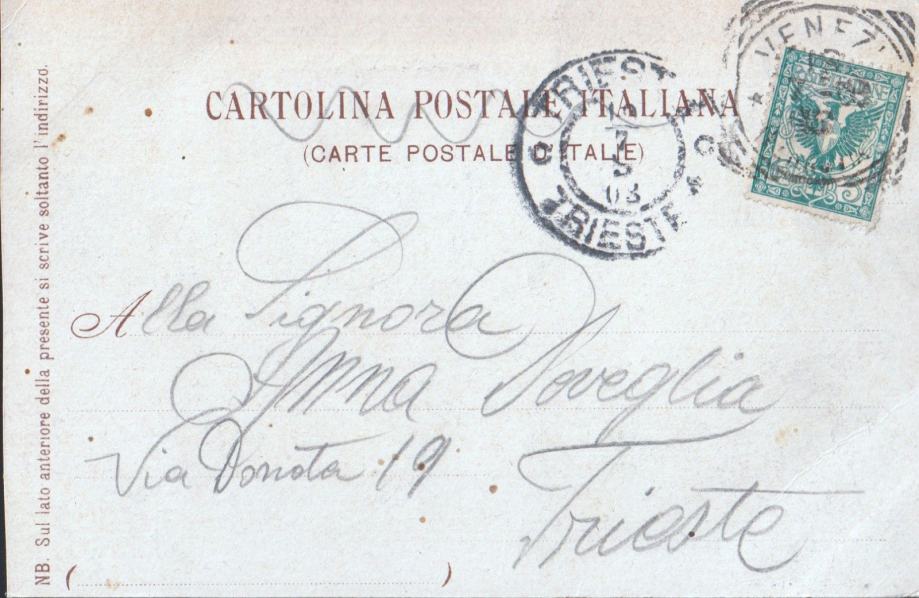 CARTOLINA POSTALE ITALIANA
(CARTE POSTALE D'ITALIE)
VENEZI
TRIESTE
7
03
TRIESTE
Alla Signora
Anna Doveglia
Via Donota 19
Trieste
NB. Sul lato anteriore della presente si scrive soltanto l'indirizzo.